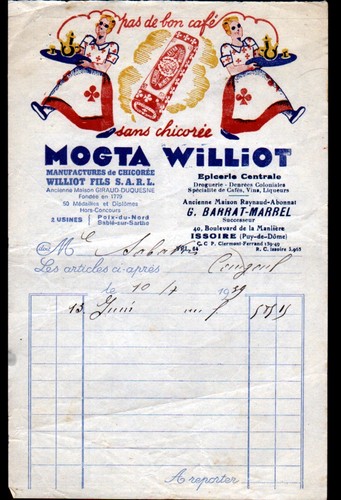 pas de bon café
sans chicorée
MOGTA WILLIOT
MANUFACTURES de CHICORÉE
WILLIOT FILS S.A.R.L.
Ancienne Maison GIRAUD-DUQUESNE
Fondée en 1779
60 Médailles et Diplômes
Hors-Concours
2 USINES Poix-du-Nord
Sablé-sur-Sarthe
Epicerie Centrale
Droguerie - Denrées Coloniales
Spécialité de Cafés, Vins, Liqueurs
Ancienne Maison Raynaud-Abonnat
G. BARRAT-MARREL
Successeur
40, Boulevard de la Manlière
ISSOIRE (Puy-de-Dôme)
C.C.P. Clermont-Ferrand 139-49
R.C. Issoire 2.468
Doit M
TÉL. 64
Les articles ci-après
le 10 / 1939
13 Juni
A reporter